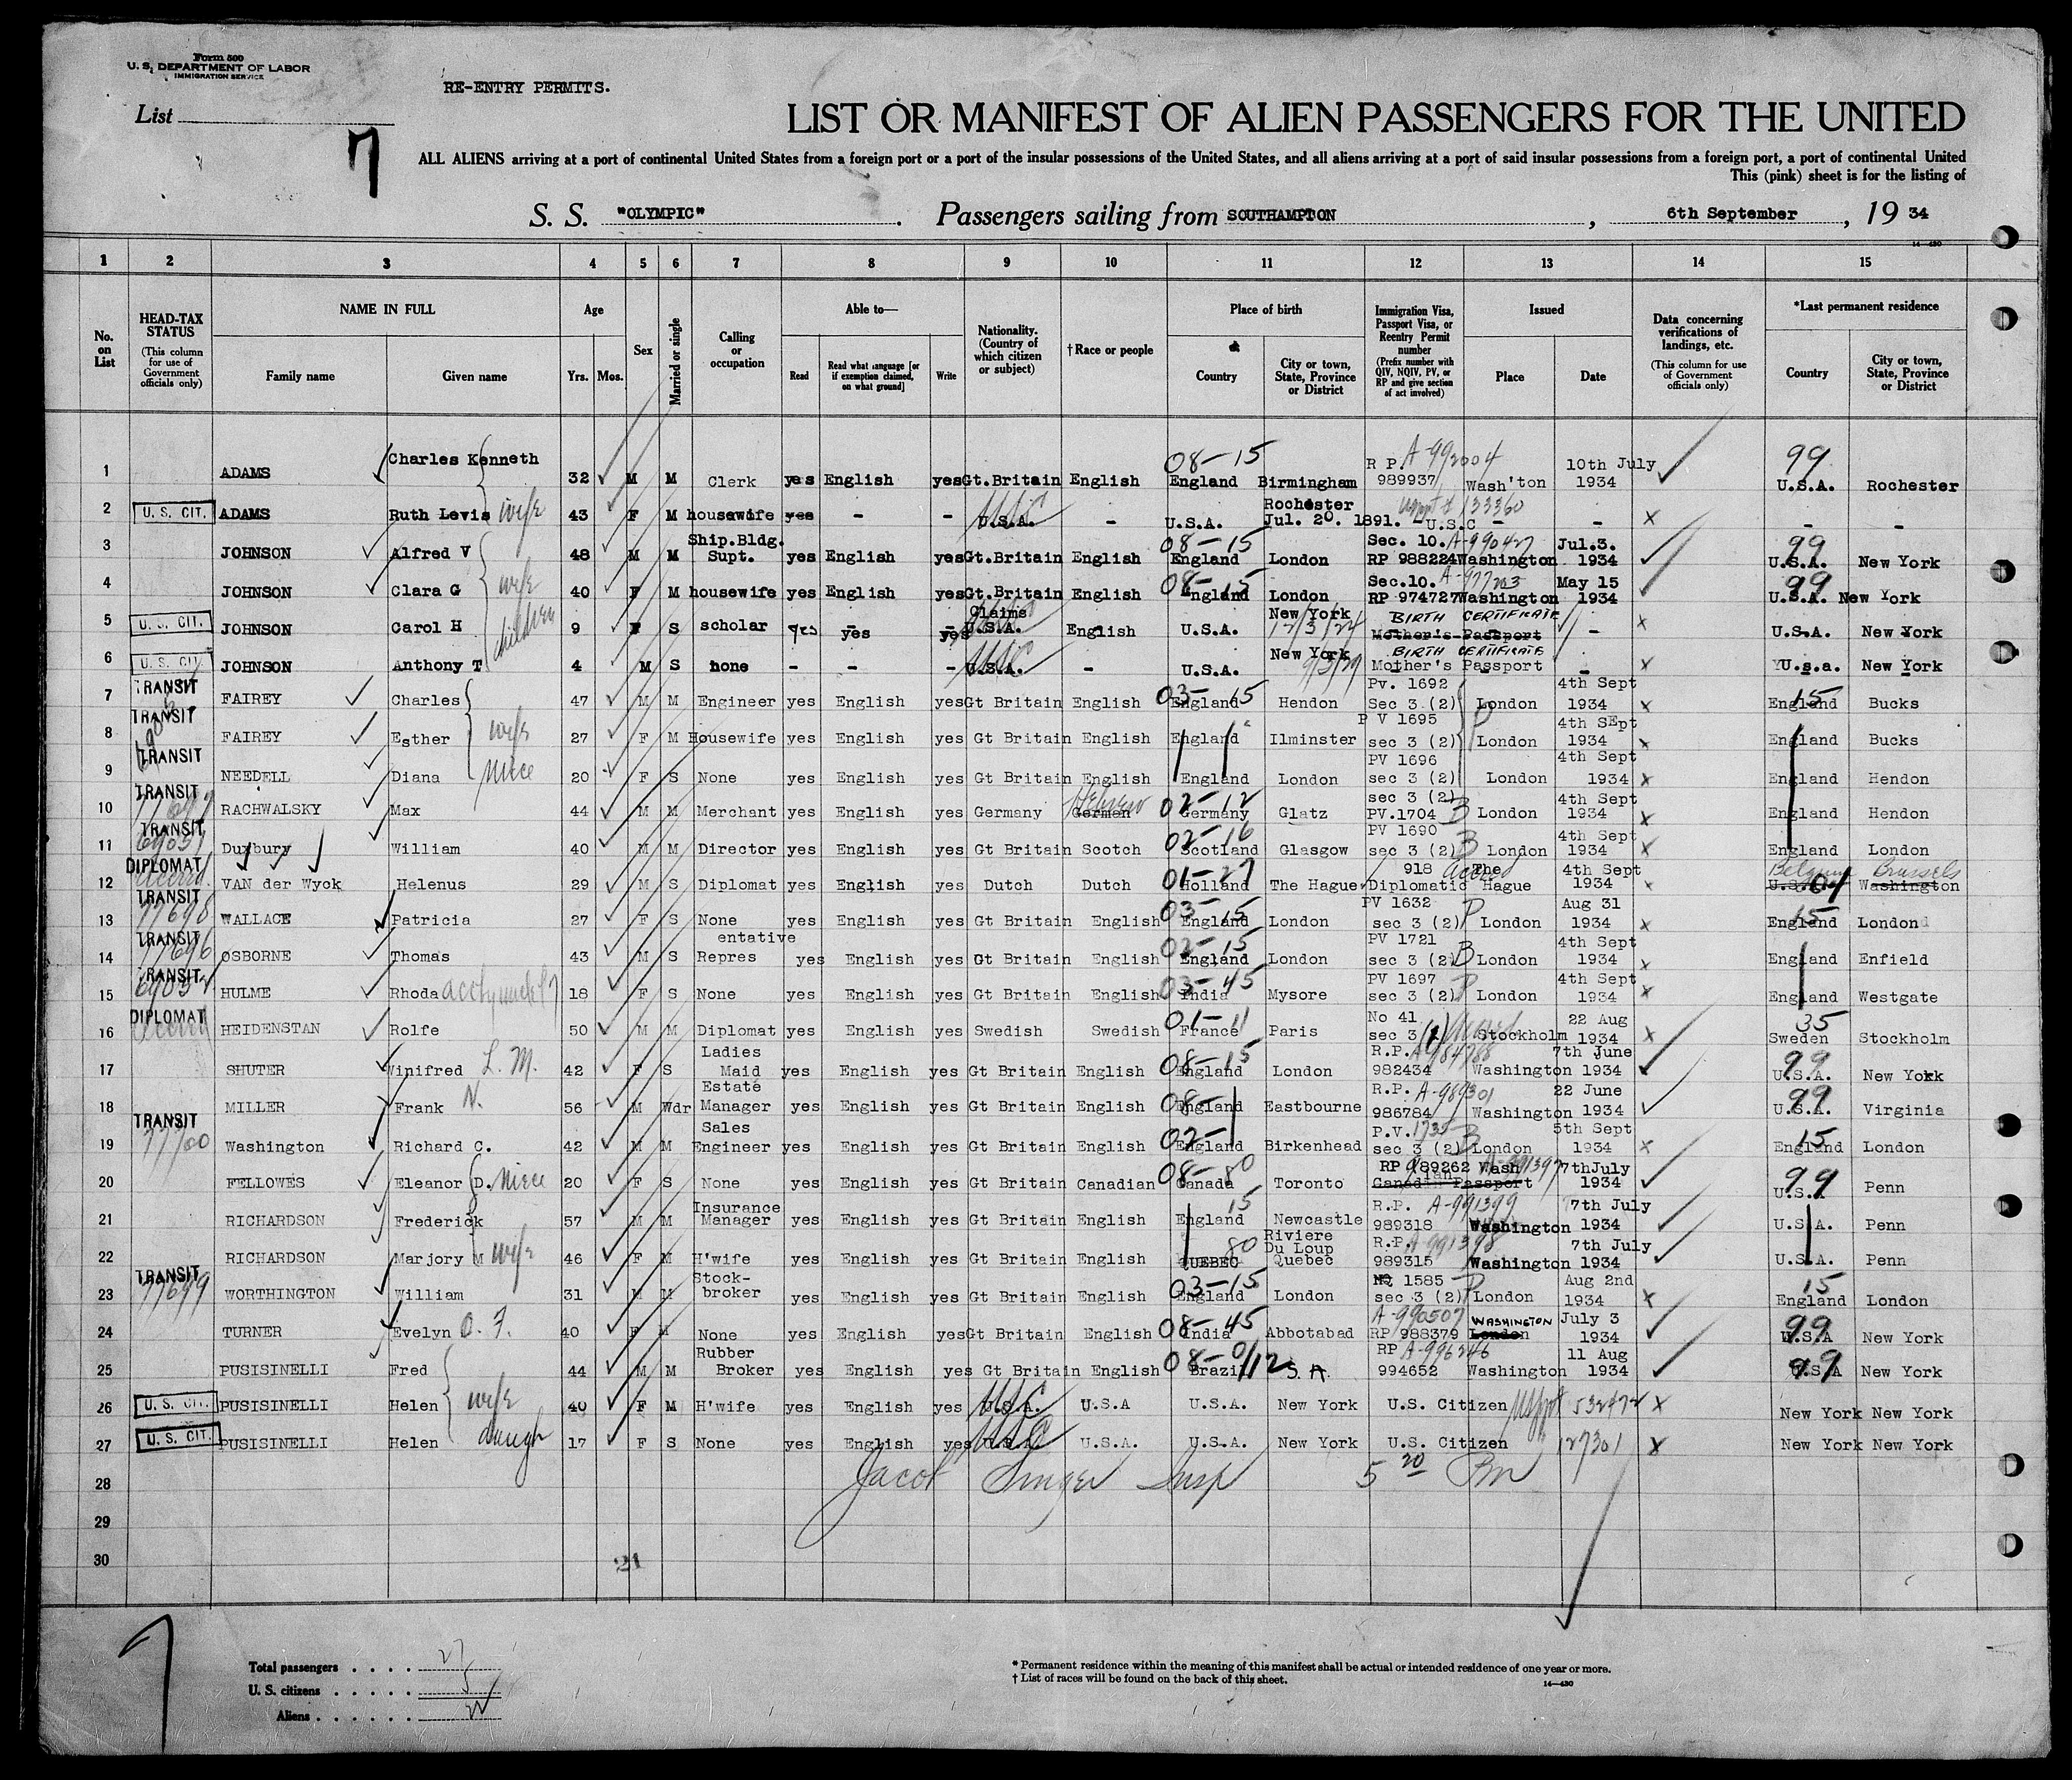 Form 500
U. S. DEPARTMENT OF LABOR
IMMIGRATION SERVICE
RE-ENTRY PERMITS.
List
7
LIST OR MANIFEST OF ALIEN PASSENGERS FOR THE UNITED
ALL ALIENS arriving at a port of continental United States from a foreign port or a port of the insular possessions of the United States, and all aliens arriving at a port of said insular possessions from a foreign port, a port of continental United
This (pink) sheet is for the listing of
S. S. "OLYMPIC". Passengers sailing from SOUTHAMPTON, 6th September, 19 34
14—430
1 2 3 4 5 6 7 8 9 10 11 12 13 14 15
No. on List
HEAD-TAX STATUS (This column for use of Government officials only)
NAME IN FULL Family name Given name
Age Yrs. Mos.
Sex
Married or single
Calling or occupation
Able to— Read Read what language [or if exemption claimed, on what ground] Write
Nationality. (Country of which citizen or subject)
† Race or people
Place of birth Country City or town, State, Province or District
Immigration Visa, Passport Visa, or Reentry Permit number (Prefix number with QIV, NQIV, PV, or RP and give section of act involved)
Issued Place Date
Data concerning verifications of landings, etc. (This column for use of Government officials only)
*Last permanent residence Country City or town, State, Province or District
1 ADAMS Charles Kenneth 32 M M Clerk yes English yes Gt.Britain English 08-15 England Birmingham R P. A-992004 989937 Wash'ton 10th July 1934 99 U.S.A. Rochester
2 U. S. CIT. ADAMS Ruth Levis wife 43 F M housewife yes - - USC U.S.A. - U.S.A. Rochester Jul. 20. 1891. 133360 - U.S.C - - X - -
3 JOHNSON Alfred V 48 M M Ship.Bldg. Supt. yes English yes Gt.Britain English 08-15 England London Sec. 10. A-990427 RP 988224 Washington Jul.3. 1934 99 U.S.A. New York
4 JOHNSON Clara G wife 40 F M housewife yes English yes Gt.Britain English 08-15 England London Sec.10. A-977203 RP 974727 Washington May 15 1934 99 U.S.A. New York
5 U. S. CIT. JOHNSON Carol H children 9 F S scholar yes yes yes Claims U.S.A. English U.S.A. New York 12/3/24 BIRTH CERTIFICATE Mother's Passport - X U.S.A. New York
6 U. S. CIT. JOHNSON Anthony T 4 M S none - - - USC U.S.A. - U.S.A. New York 9/3/29 BIRTH CERTIFICATE Mother's Passport - X U.s.a. New York
7 TRANSIT FAIREY Charles 47 M M Engineer yes English yes Gt Britain English 03-15 England Hendon Pv. 1692 Sec 3 (2) London 4th Sept 1934 X 15 England Bucks
8 TRANSIT FAIREY Esther wife 27 F M Housewife yes English yes Gt Britain English England Ilminster P V 1695 sec 3 (2) P London 4th SEpt 1934 X England Bucks
9 TRANSIT NEEDELL Diana niece 20 F S None yes English yes Gt Britain English England London PV 1696 sec 3 (2) London 4th Sept 1934 X England Hendon
10 TRANSIT RACHWALSKY Max 44 M M Merchant yes English yes Germany Hebrew German 02-12 Germany Glatz sec 3 (2) PV.1704 B London 4th Sept 1934 X England Hendon
11 TRANSIT Duxbury William 40 M M Director yes English yes Gt Britain Scotch 02-16 Scotland Glasgow PV 1690 sec 3 (2) B London 4th Sept 1934 X England London
12 DIPLOMAT VAN der Wyck Helenus 29 M S Diplomat yes English yes Dutch Dutch 01-27 Holland The Hague 918 Diplomatic The Hague 4th Sept 1934 X Belgium Brussels U.S.A. 04 Washington
13 TRANSIT 77698 WALLACE Patricia 27 F S None yes English yes Gt Britain English 03-15 England London PV 1632 sec 3 (2) P London Aug 31 1934 X 15 England London
14 TRANSIT 77696 OSBORNE Thomas 43 M S entative Repres yes English yes Gt Britain English 02-15 England London PV 1721 sec 3 (2) B London 4th Sept 1934 X England Enfield
15 TRANSIT HULME Rhoda 18 F S None yes English yes Gt Britain English 03-45 India Mysore PV 1697 sec 3 (2) P London 4th Sept 1934 X England Westgate
16 DIPLOMAT HEIDENSTAN Rolfe 50 M M Diplomat yes English yes Swedish Swedish 01-11 France Paris No 41 sec 3 (1) Stockholm 22 Aug 1934 X 35 Sweden Stockholm
17 SHUTER Winifred L. M. 42 F S Ladies Maid yes English yes Gt Britain English 08-15 England London R.P. A-984788 982434 Washington 7th June 1934 99 U.S.A. New York
18 MILLER Frank N. 56 M Wdr Estate Manager yes English yes Gt Britain English 08- England Eastbourne R.P. A-989301 986784 Washington 22 June 1934 99 U.S.A. Virginia
19 TRANSIT 77700 Washington Richard C. 42 M M Sales Engineer yes English yes Gt Britain English 02- England Birkenhead P.V. 1735 sec 3 (2) B London 5th Sept 1934 X 15 England London
20 FELLOWES Eleanor D. niece 20 F S None yes English yes Gt Britain Canadian 08-80 Canada Toronto RP 989262 Wash A-991397 Canadian Passport 7thJuly 1934 99 U.S.A Penn
21 RICHARDSON Frederick 57 M M Insurance Manager yes English yes Gt Britain English 15 England Newcastle R.P. A-991399 989318 Washington 7th July 1934 U.S.A. Penn
22 RICHARDSON Marjory M wife 46 F M H'wife yes English yes Gt Britain English 80 QUEBEC Riviere Du Loup Quebec R.P. A-991398 989315 Washington 7th July 1934 U.S.A. Penn
23 TRANSIT 77699 WORTHINGTON William 31 M M Stock-broker yes English yes Gt Britain English 03-15 England London 1585 sec 3 (2) P London Aug 2nd 1934 X 15 England London
24 TURNER Evelyn O. F. 40 F M None yes English yes Gt Britain English 08-45 India Abbotabad A-990507 RP 988379 WASHINGTON London July 3 1934 99 U.S.A New York
25 PUSISINELLI Fred 44 M M Rubber Broker yes English yes Gt Britain English 08-0/12 Brazil S. A. RP A-996246 994652 Washington 11 Aug 1934 99 U.S.A New York
26 U. S. CIT. PUSISINELLI Helen wife 40 F M H'wife yes English yes USC U.S.A. U.S.A U.S.A. New York U.S. Citizen USppt 532472 X New York New York
27 U. S. CIT. PUSISINELLI Helen daugh 17 F S None yes English yes USC U.S.A. U.S.A. U.S.A. New York U.S. Citizen 127301 X New York New York
28 Jacob Singer Insp 5 20 Pm
29
30
21
7
Total passengers . . . . 27
U. S. citizens . . . . . 5
Aliens . . . . . . 22
* Permanent residence within the meaning of this manifest shall be actual or intended residence of one year or more.
† List of races will be found on the back of this sheet.
14—430